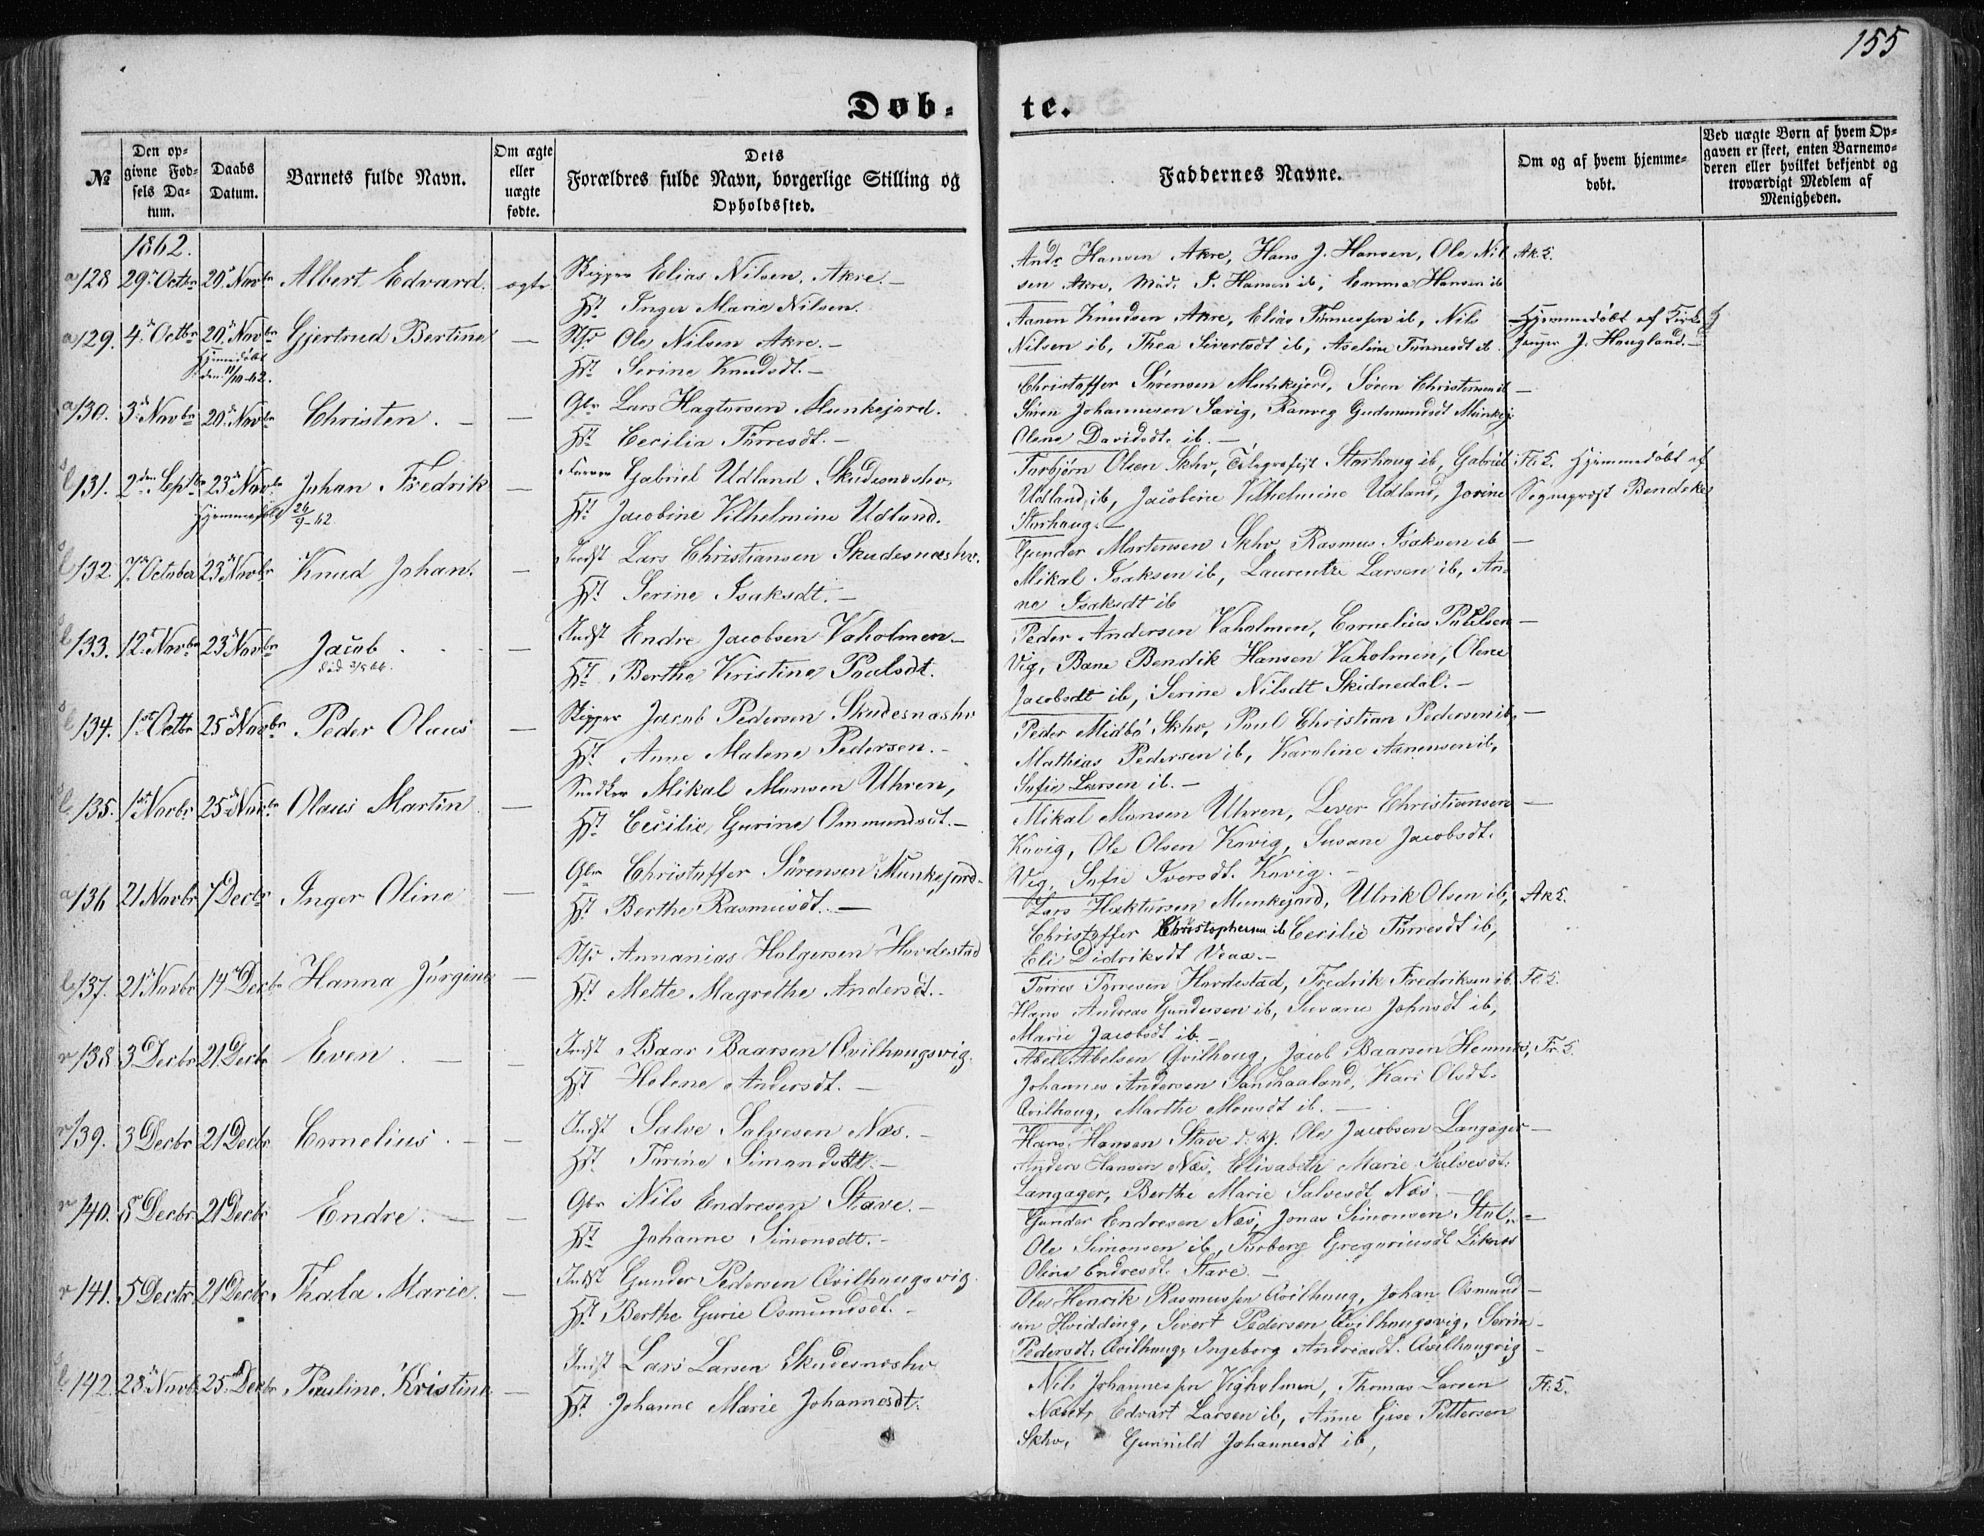 155
Døb-
te.
№
Den op-
givne Fød-
sels Da-
tum.
Daabs
Datum.
Barnets fulde Navn.
Om ægte
eller
uægte
fødte.
Dets
Forældres fulde Navn, borgerlige Stilling og
Opholdssted.
Faddernes Navne.
Om og af hvem hjemme-
døbt.
Ved uægte Børn af hvem Op-
gaven er skeet, enten Barnemo-
deren eller hvilket bekjendt og
troværdigt Medlem af
Menigheden.
1862.
a/128 29. Octbr 20. Novbr Albert Edvard. ægte Skipper Elias Nilsen, Akre. –
Ht Inger Marie Nilsen.
Andr Hansen Akre, Hans J. Hansen, Ole Nil
sen Akre, Mad. I. Hansen ib, Emma Hansen ib
AkS.
a/129. 4. Octbr 20. Novbr Gjertrud Bertine – Ole Nilsen Akre. –
Hjemmedøbt
den 11/10-62.
Ht Serine Knudsdt. –
Aanen Knudsen Akre, Elias Tønnessen ib, Nils
Nilsen ib, Thea Sivertsdt ib, Aseline Tønnesdt ib.
Hjemmedøbt af Kirke
sanger J. Haugland. –
a/130. 3. Novbr 20. Novbr Christen. – – Gbr Lars Hagtorsen Munkejord.
Ht Cecilia Tørresdt. –
Christoffer Sørensen Munkejord, Søren Christensen ib –
Søren Johannesen Sævig, Ranveg Gudmundsdt Munkej.
Olene Davidsdt. ib. –
131. 2den Septbr 23. Novbr Johan Fredrik – Gabriel Udland Skudesneshv.
Hjemmedøbt 26/9-62
Ht Jacobine Vilhelmine Udland.
Torbjørn Olsen Skhv, Telegrafist Storhaug ib, Gabriel
Udland ib, Jacobine Vilhelmine Udland, Jorine
Storhaug. –
Fl.S. Hjemmedøbt af
Sognepræst Bendeke
132. 7. October 23. Novbr Knud Johan. – Indst Lars Christiansen Skudesnæshv.
Ht Serine Isaksdt. –
Gunder Mortensen Skhv, Rasmus Isaksen ib –
Mikal Isaksen ib, Laurentze Larsen ib, An-
ne Isaksdt ib
133. 12. Novbr 23. Novbr Jacob – Indst Endre Jacobsen Vaholmen –
Ht Berthe Kristine Poulsdt.
Peder Andersen Vaholmen, Cornelius Poulsen –
Vig, Bane Bendik Hansen Vaholmen, Olene
Jacobsdt ib, Serine Nilsdt Skidnedal. –
134. 1st Octbr 25. Novbr Peder Olaus – Skipper Jacob Pedersen Skudesnæshv
Ht Anne Malene Pedersen. –
Peder Midbø Skhv, Poul Christian Pedersen ib, –
Mathias Pedersen ib, Karoline Aanensen ib,
Sofie Larsen ib. –
135. 1st Novbr 25. Novbr Olaus Martin – Snedker Mikal Monsen Uhren,
Ht Cecilie Gurine Ommundsdt. –
Mikal Monsen Uhren, Lever Christiansen –
Kavig, Ole Olsen Kavig, Susane Jacobsdt.
Vig, Sofie Iversdt. Kavig. –
a/136 21 Novbr 7 Decbr Inger Oline – Gbr Christoffer Sørensen Munkejord.
Ht Berthe Rasmusdt. –
Lars Haktorsen Munkejord, Ulrik Olsen ib,
Christoffer Christophersen ib Cecilie Tørresdt ib,
Eli Didriksdt Veaa. –
AkS.
137. 21 Novbr 14 Decbr Hanna Jørgine – Annanias Holgersen Hordestad
Ht Mette Magrethe Andersdt. –
Tørres Tørresen Hordestad, Fredrik Fredriksen ib.
Hans Andreas Gundersen ib, Susane Johnsdt ib,
Marie Jacobsdt ib. –
Fl.S.
138 3 Decbr 21 Decbr Even – – Indst Baar Baarsen Qvilhaugsvig.
Ht Helene Andersdt. –
Abel Abelsen Qvilhaug, Jacob Baarsen Hemnes,
Johannes Andersen Sandhaaland, Kari Olsdt.
Qvilhaug, Marthe Monsdt ib. –
Fr.S.
139. 3 Decbr 21 Decbr Cornelius. – – Indst Salve Salvesen Næs. –
Ht. Tarine Simondsdt. –
Hans Hansen Stave d. y. Ole Jacobsen Langager –
Anders Hansen Næs, Elisabeth Marie Salvesdt.
Langager, Berthe Marie Salvesdt Næs –
140. 8 Decbr 21 Decbr Endre. – – Gbr Nils Endresen Stave. –
Ht Johanne Simonsdt. –
Gunder Endresen Næs, Jonas Simonsen Stol, –
Ole Simonsen ib, Torberg Gregoriusdt Liknes
Oline Endresdt. Stave. –
141. 5 Decbr 21 Decbr. Thala Marie. – Indst Gunder Pedersen Qvilhaugsvig.
Ht Berthe Gurie Osmundsdt. –
Ole Henrik Rasmussen Qvilhaug, Johan Osmund –
sen Hvidding, Sivert Pedersen Qvilhaugsvig, Serine
Pedersdt. Qvilhaug, Ingeborg Andreasdt. Qvilhaugvig –
142. 28. Novbr 25. Decbr Pauline Kristine – Indst Lars Larsen Skudesneshv
Ht. Johanne Marie Johannesdt.
Nils Johannessen Vigholmen, Thomas Larsen
Næset, Edvart Larsen ib, Anne Gise Pettersen
Skhv, Gunnild Johannesdt ib,
Fl.S.